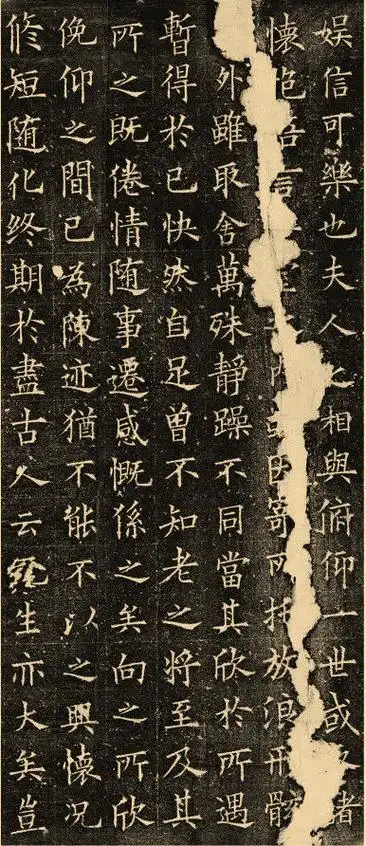 娱信可樂也夫人之相與俯仰一世或諸
懷抱言内或因寄所托放浪形骸
外雖取舍萬殊靜躁不同當其欣於所遇
暫得於己快然自足曾不知老之將至及其
所之既倦情随事遷感慨係之矣向之所欣
俛仰之間已為陳迹猶不能不以之興懷况
脩短随化終期於盡古人云生亦大矣豈